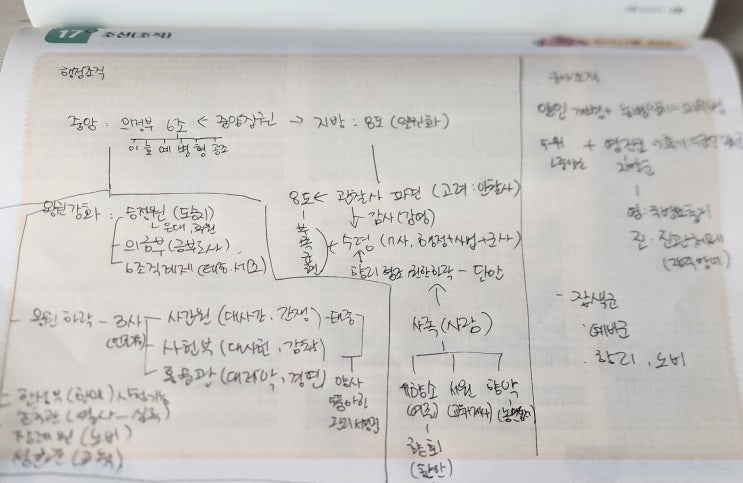 17 조선(조직)
행정조직
중앙 : 의정부 6조 ← 중앙집권 → 지방 : 8도 (일원화)
이 호 예 병 형 공조
8도 ← 관찰사 파견 (고려 : 안찰사)
↓ 감사 (감영)
부 목 군 현
수령 (7사, 행정+사법+군사)
향리 권한하락 - 단안
왕권강화 : 승정원 (도승지)
은대, 후원
의금부 (금부도사)
6조직계제 (태종, 세조)
사족 (사림)
왕권 하락 - 3사
사간원 (대사간, 간쟁) - 태종
사헌부 (대사헌, 감찰)
홍문관 (대제학, 경연)
양사
5품이하
관리 서경권
유향소 서원 향약
향회
(향안)
한성부 (한양) 사법기능
춘추관 (역사 - 실록)
장례원 (노비)
성균관 (교육)
군사조직
양인개병+ 농병일치
수군 + 영진군
영 : 국방요충지
진 : 진관체제
- 잡색군
예비군
향리, 노비